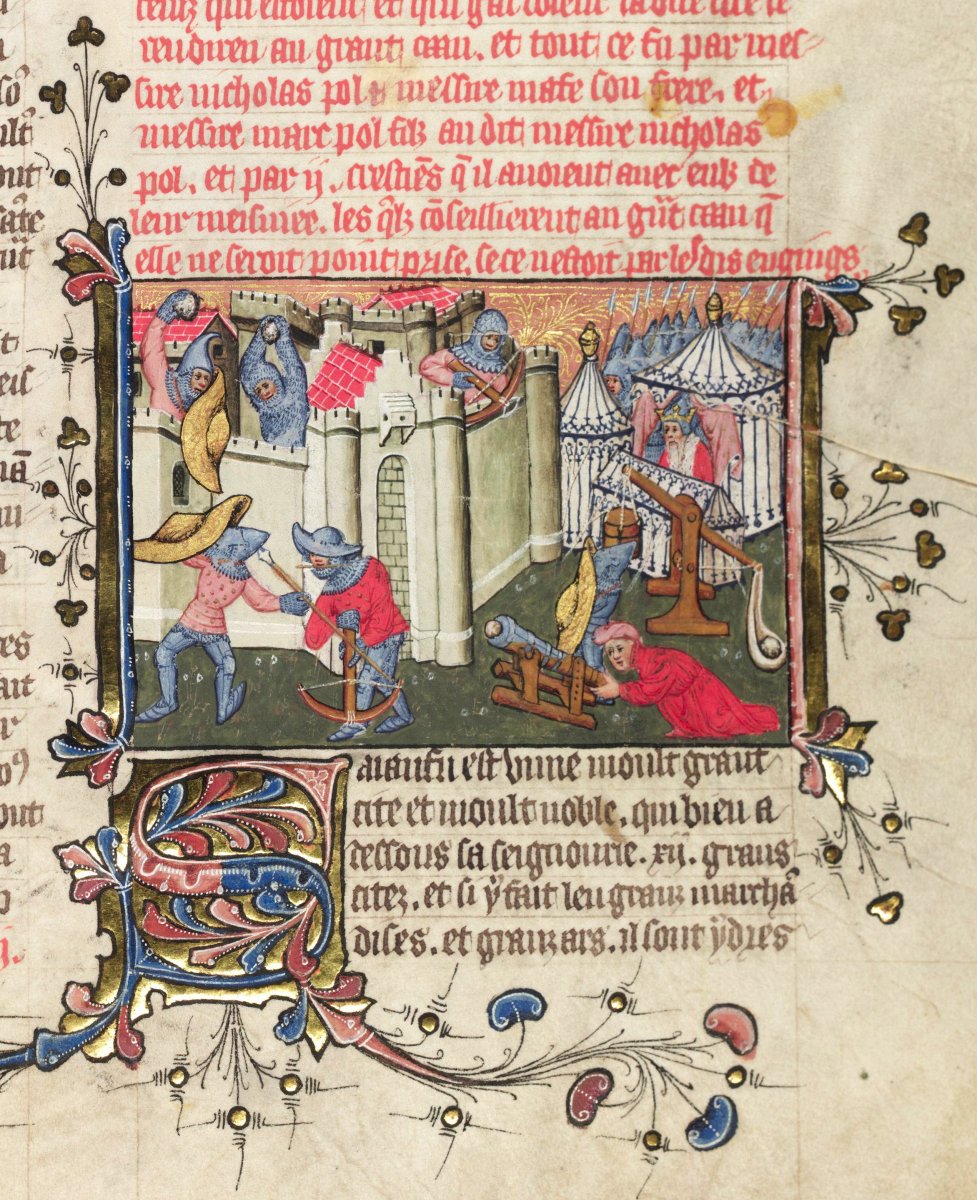 qui estoient et qui
rendirent au grant caan. et tout ce fu par mes-
sire nicholas pol messire mafe son frere. et
messire marc pol filz audit messire nicholas
pol. et par ij. crestiẽs q̃ il auoient auec eulz de
leur meisniee. les q̃lz cõseillierent au gñt caan q̃
elle ne seroit point prise. se ce nestoit par lesdis engings
Saianfu est vnne moult grant
cite et moult noble. qui bien a
dessous sa seignourie. xij. grans
citez. et si y fait len granz marchã
dises. et granz ars. il sont ydres